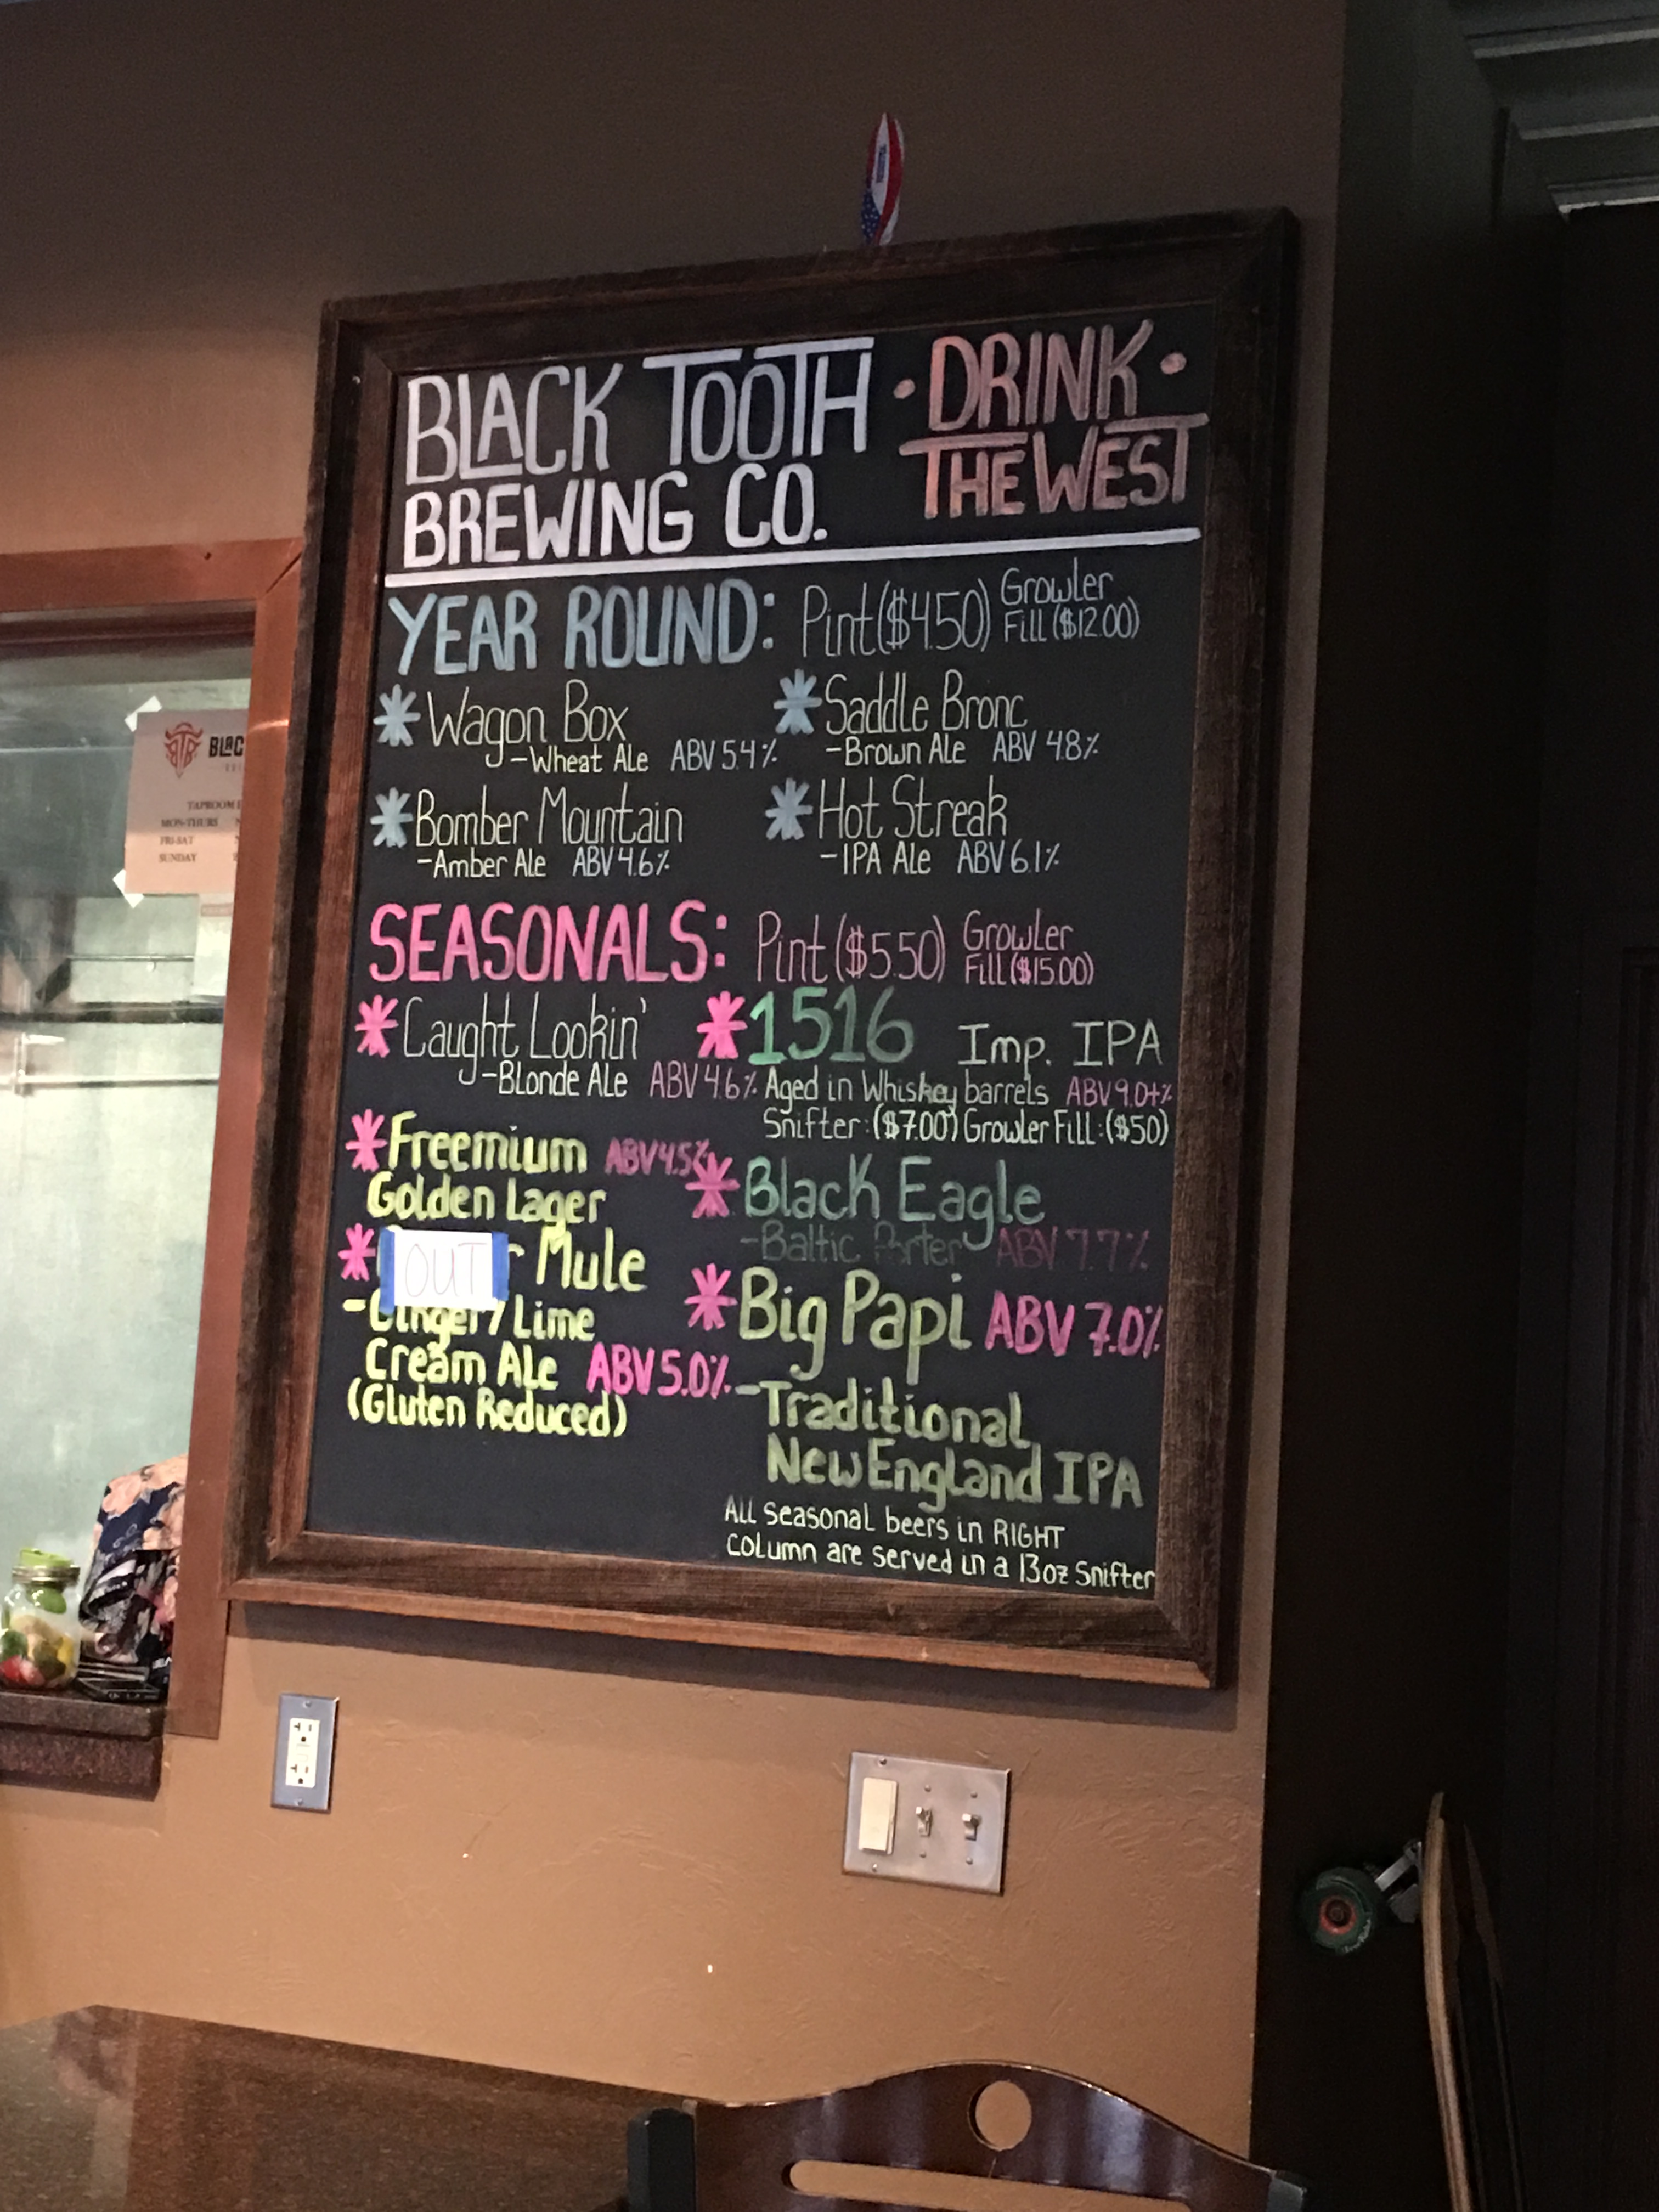 BLACK TOOTH
BREWING CO.
• DRINK •
THE WEST
YEAR ROUND: Pint ($4.50) Growler
Fill ($12.00)
* Wagon Box
-Wheat Ale ABV 5.4%
* Saddle Bronc
-Brown Ale ABV 4.8%
* Bomber Mountain
-Amber Ale ABV 4.6%
* Hot Streak
-IPA Ale ABV 6.1%
SEASONALS: Pint ($5.50) Growler
Fill ($15.00)
* Caught Lookin'
-Blonde Ale ABV 4.6%
* Freemium ABV 4.5%
Golden Lager
* OUT r Mule
-Ginger / Lime
Cream Ale ABV 5.0%
(Gluten Reduced)
* 1516 Imp. IPA
Aged in Whiskey barrels ABV 9.0+%
Snifter: ($7.00) Growler Fill: ($50)
* Black Eagle
-Baltic Porter ABV 7.7%
* Big Papi ABV 7.0%
-Traditional
New England IPA
All Seasonal beers in RIGHT
column are served in a 13oz Snifter
BTB BLAC
TAPROOM
MON-THURS
FRI-SAT
SUNDAY